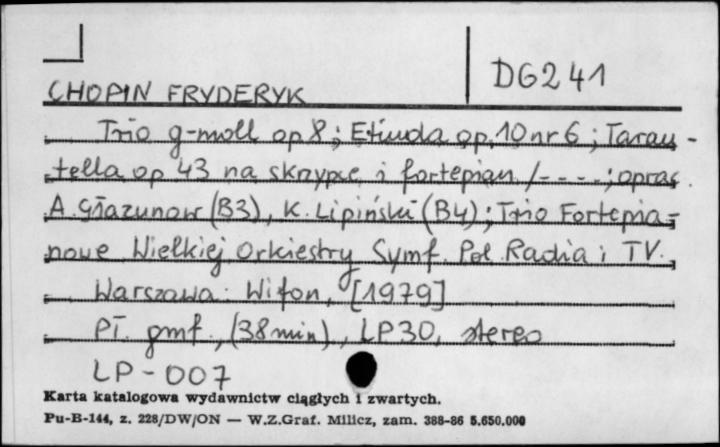 DG241
CHOPIN FRYDERYK
Trio g-moll op 8; Etiuda op. 10 nr 6; Taran-
tella op 43 na skrzypce i fortepian /----; oprac.
A. Głazunow (B3), K. Lipiński (B4); Trio Fortepia-
nowe Wielkiej Orkiestry Symf. Pol. Radia i TV.
Warszawa: Wifon, [1979]
Pł. gmf., (38 min)., LP30, stereo
LP-007
Karta katalogowa wydawnictw ciągłych i zwartych.
Pu-B-144, z. 228/DW/ON — W.Z.Graf. Milicz, zam. 388-86 5.650.000